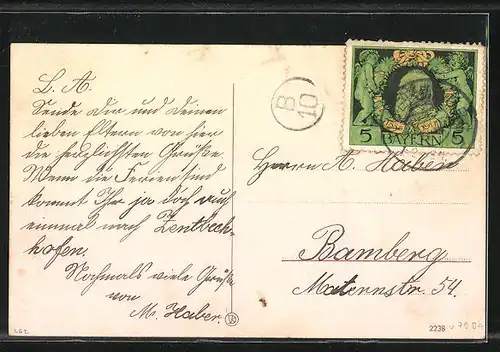 L. A.
Sende Dir und Deinen
lieben Eltern von hier
die herzlichsten Grüße.
Wenn die Ferien sind
kommt Ihr ja doch auch
einmal nach Zentbech-
hofen.
Nochmals viele Grüße
von
M. Haber.
B
10
5 5
1886 1911
BAYERN
Herrn A. Haben
Bamberg
Maternstr. 54.
2238